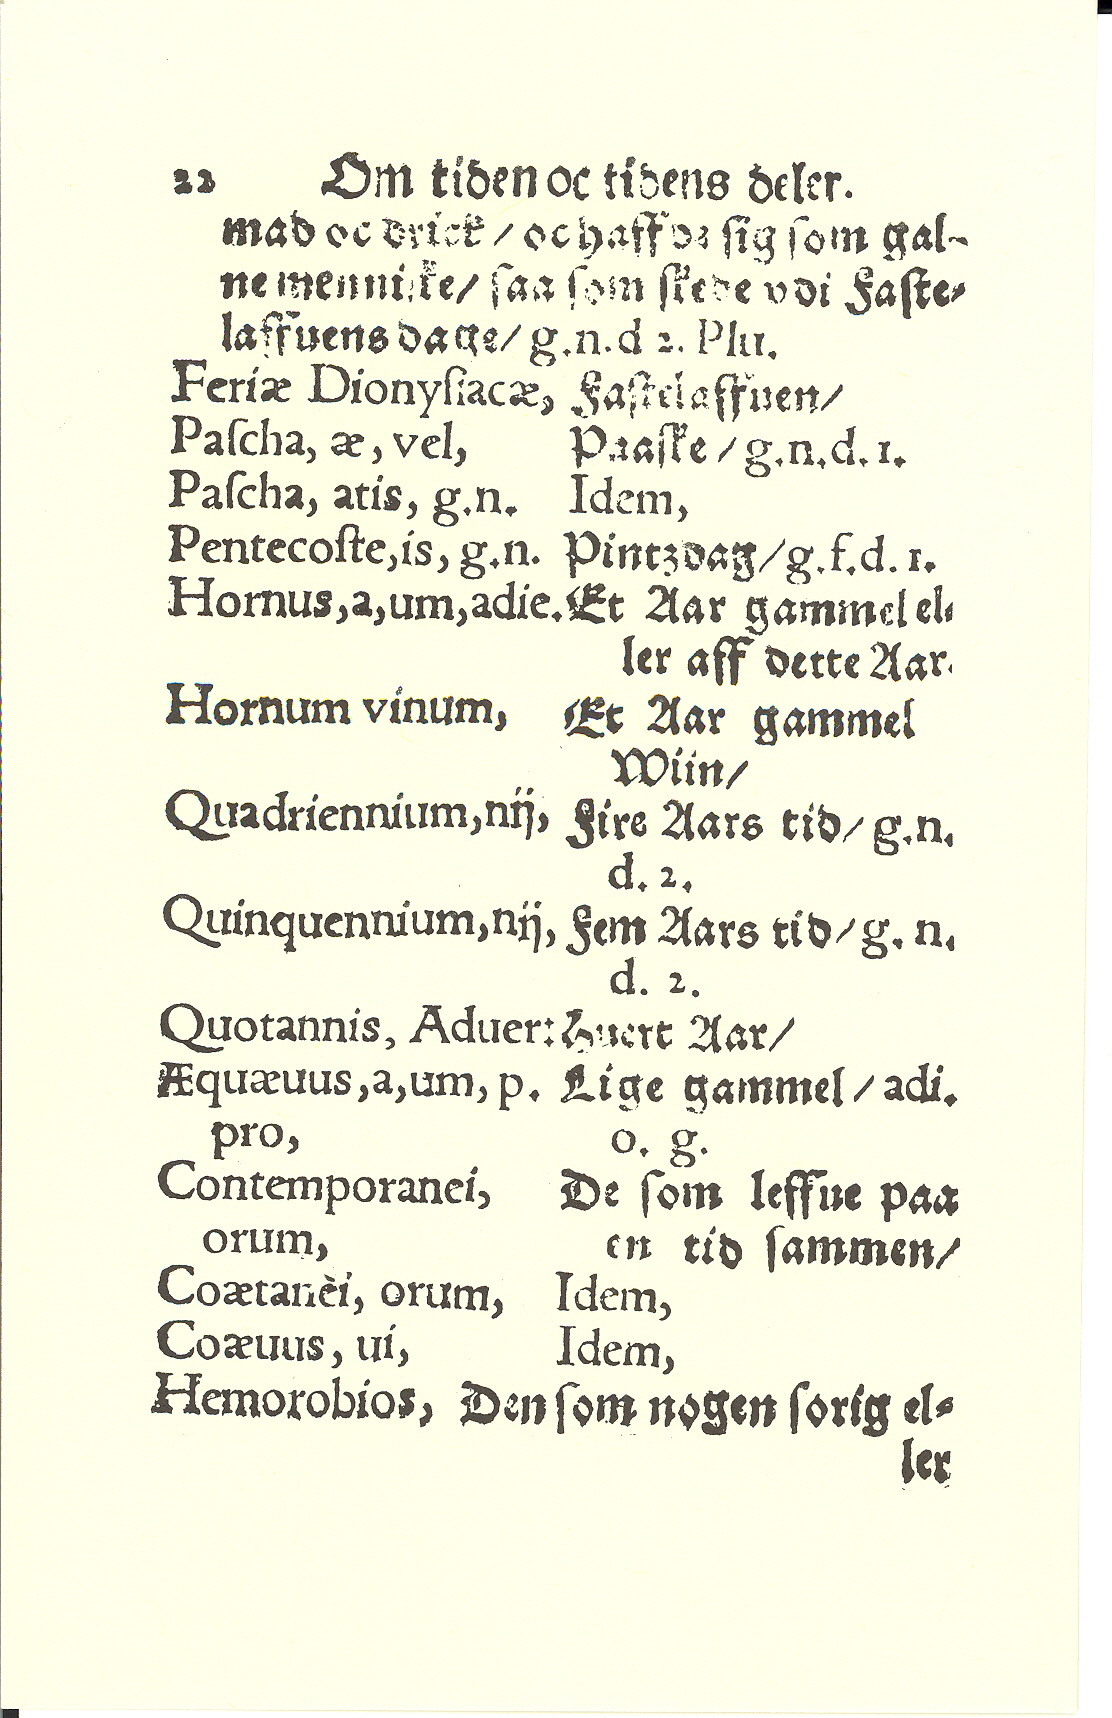 22 Om tiden oc tidens deler.
mad oc drick / oc haffde sig som gal-
ne menniske/ saa som skede vdi Faste-
laffuens dage/ g.n.d 2. Plu.
Feriæ Dionyſiacæ, Fastelaffuen/
Paſcha, æ, vel, Paaske / g.n.d. 1.
Paſcha, atis, g.n. Idem,
Pentecoſte,is, g.n. Pintzdag/g.f.d. 1.
Hornus,a,um,adie. Et Aar gammel el-
ler aff dette Aar.
Hornum vinum, Et Aar gammel
Wiin/
Quadriennium,nij, Fire Aars tid/ g.n.
d. 2.
Quinquennium,nij, Fem Aars tid/ g. n.
d. 2.
Quotannis, Aduer: Huert Aar/
Æquæuus,a,um, p. Lige gammel / adi.
pro, o. g.
Contemporanei, De ſom leffue paa
orum, en tid ſammen/
Coætanèi, orum, Idem,
Coæuus, ui, Idem,
Hemorobios, Den ſom nogen ſorig el-
ler